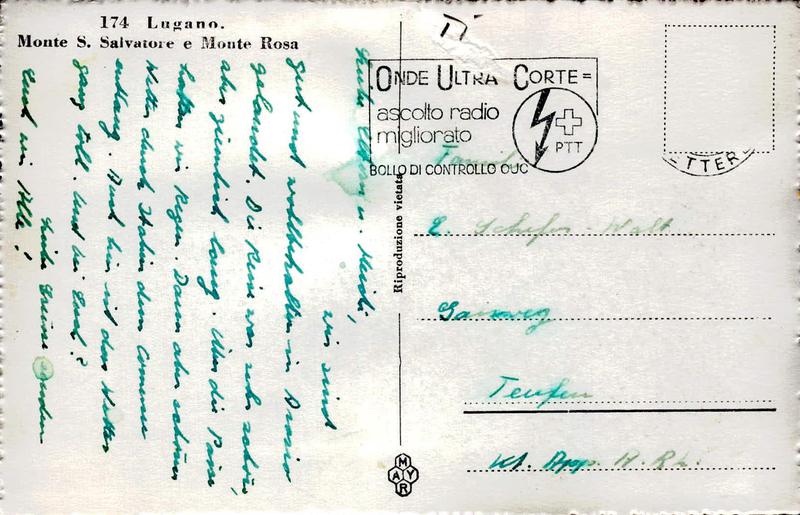 174 Lugano.
Monte S. Salvatore e Monte Rosa
Liebe Eltern u. Heidi,
wir sind
gut und wohlbehalten in Brusio
gelandet. Die Reise war sehr schön,
aber ziemlich lang. Über die Pässe
hatten wir Regen. Dann aber schönes
Wetter durch Italien dem Comersee
entlang. Auch hier ist das Wetter
ganz toll. Und bei Euch?
Euch wir Alle!
Liebe Grüsse
Riproduzione vietata
MAYR
ONDE ULTRA CORTE=
ascolto radio
migliorato
PTT
BOLLO DI CONTROLLO OUC
ETTER
Familie
E. Schefer-Walt
Teufen
Kt. App. A. Rh.